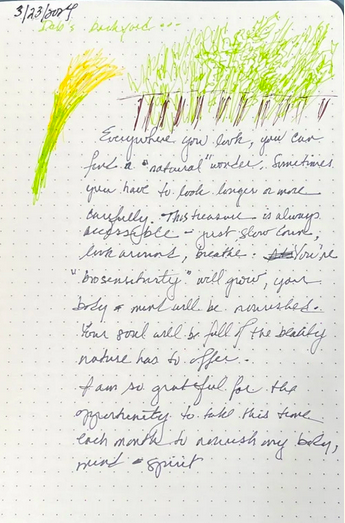 3/23/2024
backyard...
Everywhere you look, you can
find a "natural" wonder. Sometimes
you have to look longer or more
carefully. This treasure is always
accessible - just slow down,
look around, breathe. You're
"biosensitivity" will grow, your
body & mind will be nourished.
Your soul will be full of the beauty
nature has to offer.
I am so grateful for the
opportunity to take this time
each month to nourish my body,
mind & spirit